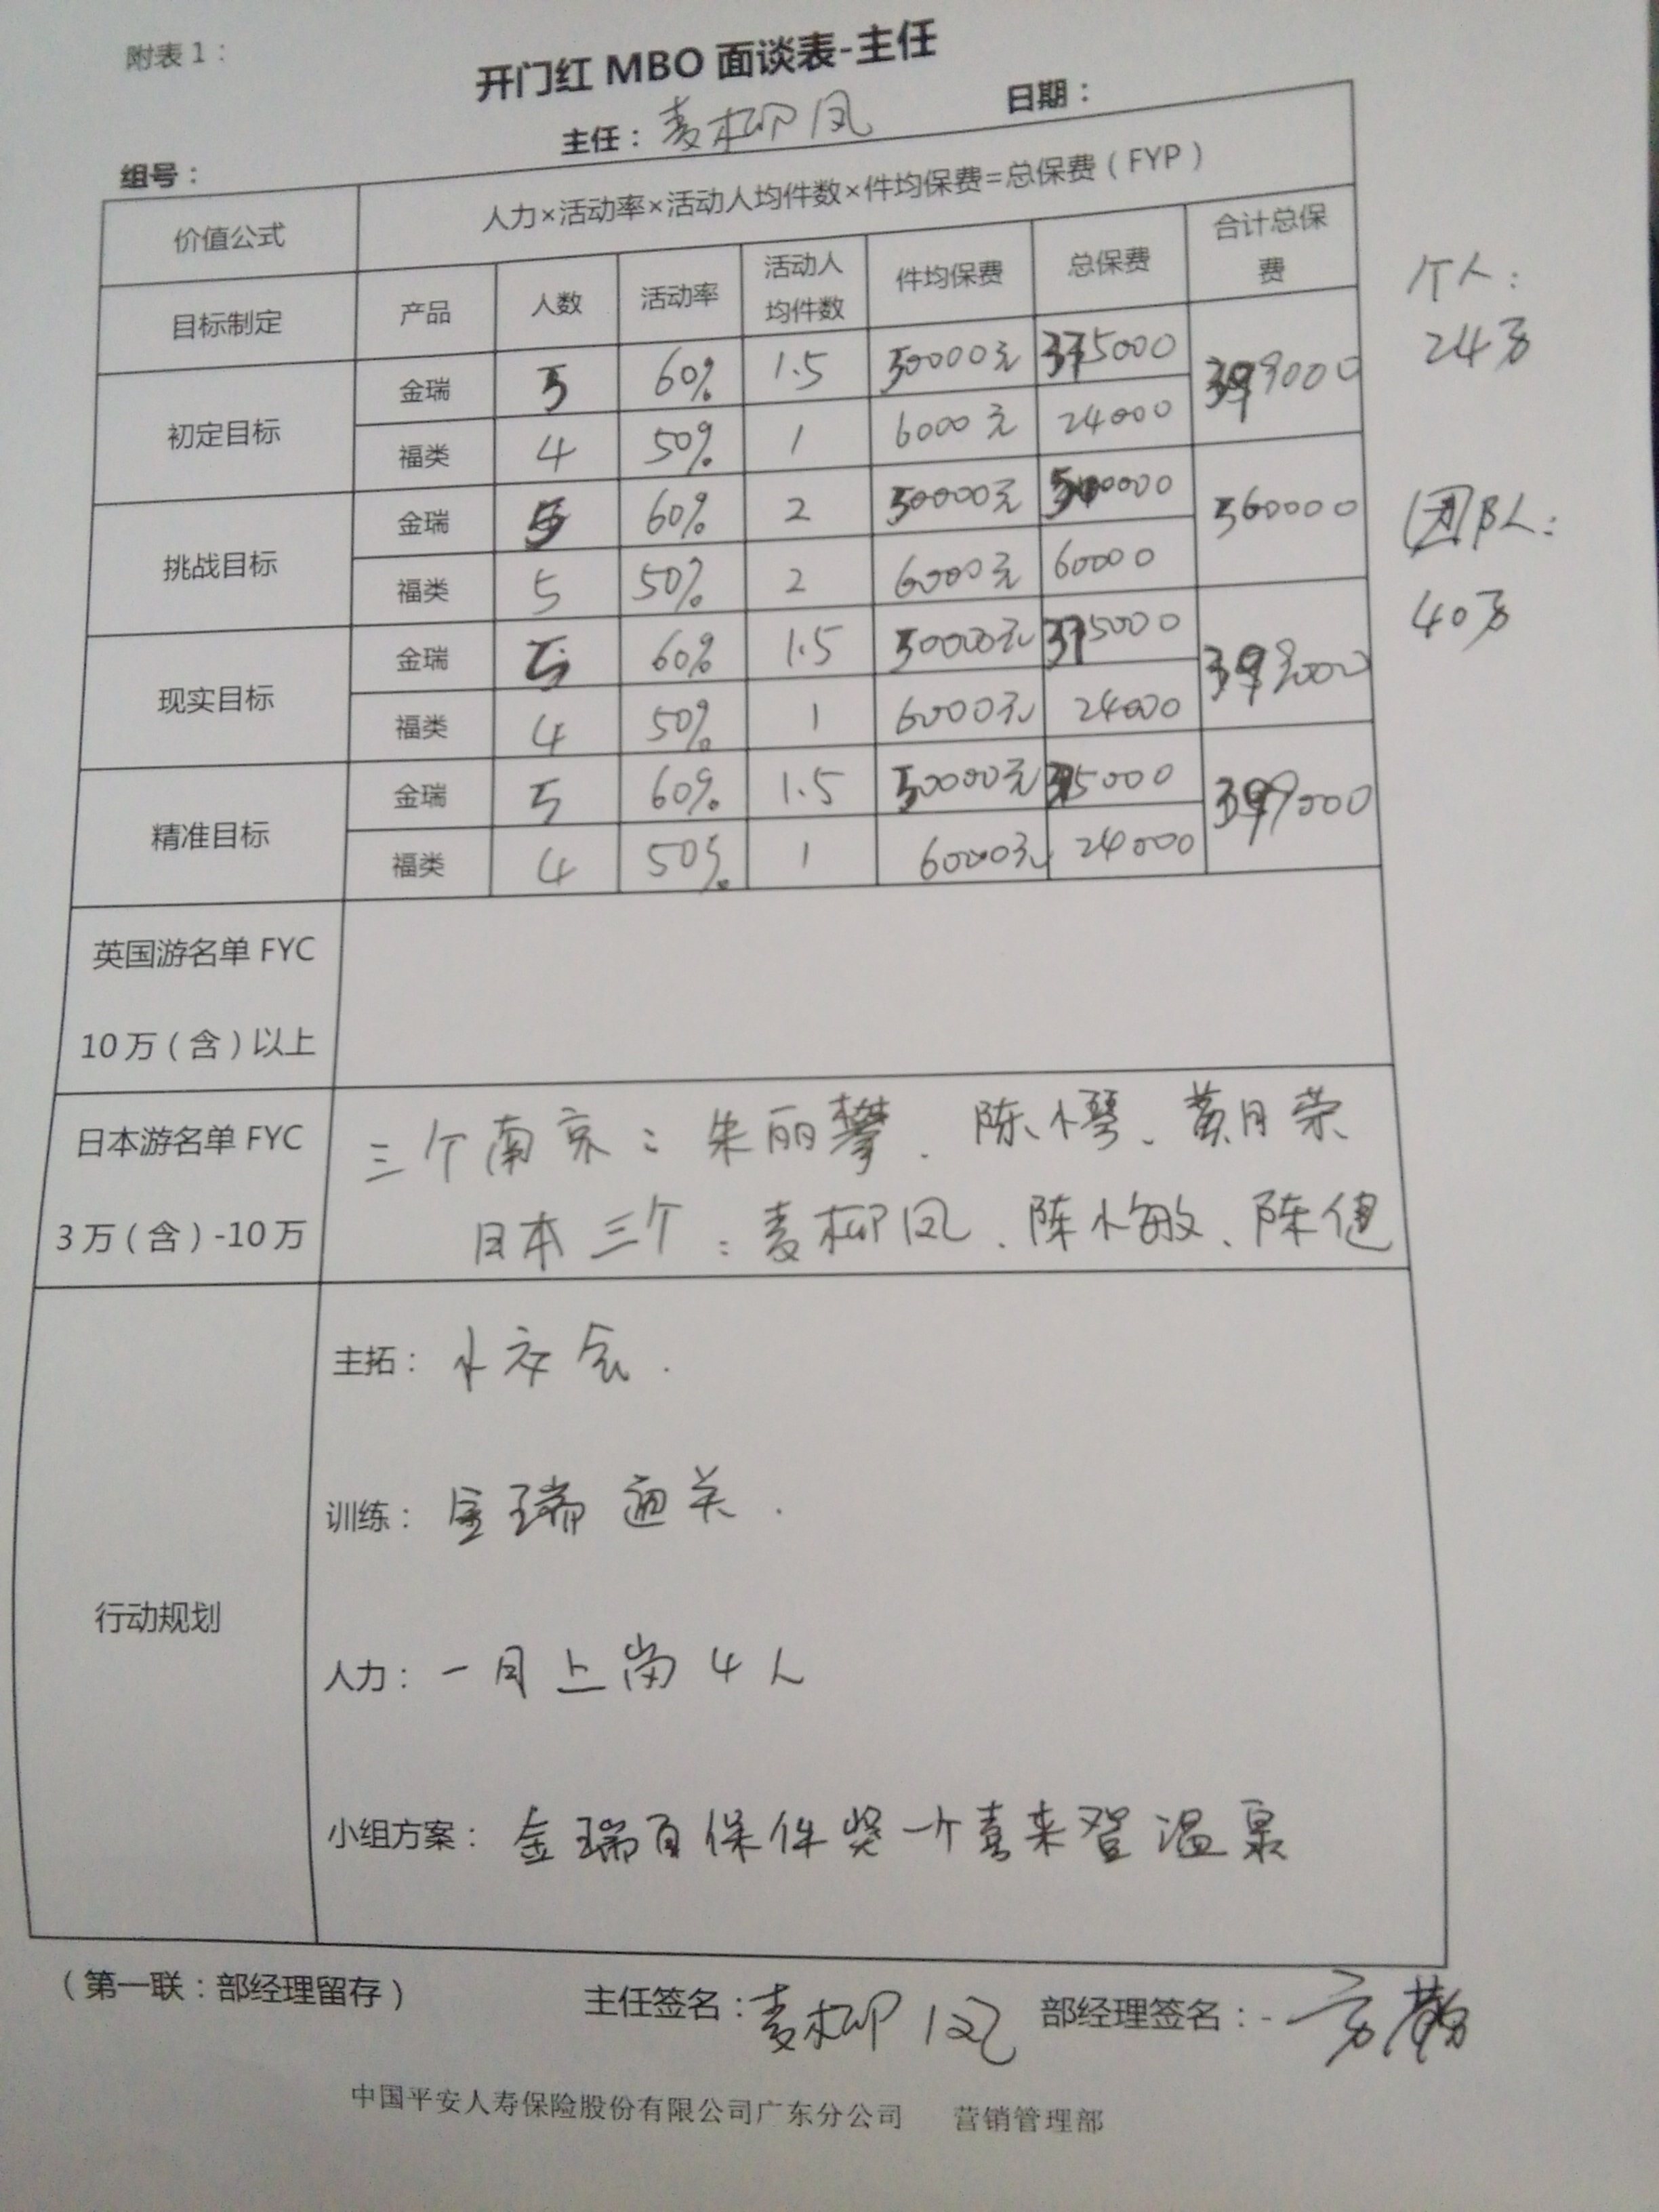 附表1：
开门红 MBO 面谈表-主任
组号： 主任：麦柳凤 日期：
价值公式 人力×活动率×活动人均件数×件均保费=总保费（FYP）
目标制定 产品 人数 活动率 活动人均件数 件均保费 总保费 合计总保费
初定目标 金瑞 5 60% 1.5 50000元 375000 399000
福类 4 50% 1 6000元 24000
挑战目标 金瑞 5 60% 2 50000元 500000 560000
福类 5 50% 2 6000元 60000
现实目标 金瑞 5 60% 1.5 50000元 375000 399000
福类 4 50% 1 6000元 24000
精准目标 金瑞 5 60% 1.5 50000元 375000 399000
福类 4 50% 1 6000元 24000
个人：
24万
团队：
40万
英国游名单 FYC
10万（含）以上
日本游名单 FYC
3万（含）-10万
三个南京：朱丽攀、陈小琴、黄月荣
日本三个：麦柳凤、陈小敏、陈健
行动规划
主拓：水交会.
训练：金瑞通关.
人力：一月上岗4人
小组方案：金瑞百保件奖一个喜来登温泉
（第一联：部经理留存） 主任签名：麦柳凤 部经理签名：
中国平安人寿保险股份有限公司广东分公司 营销管理部